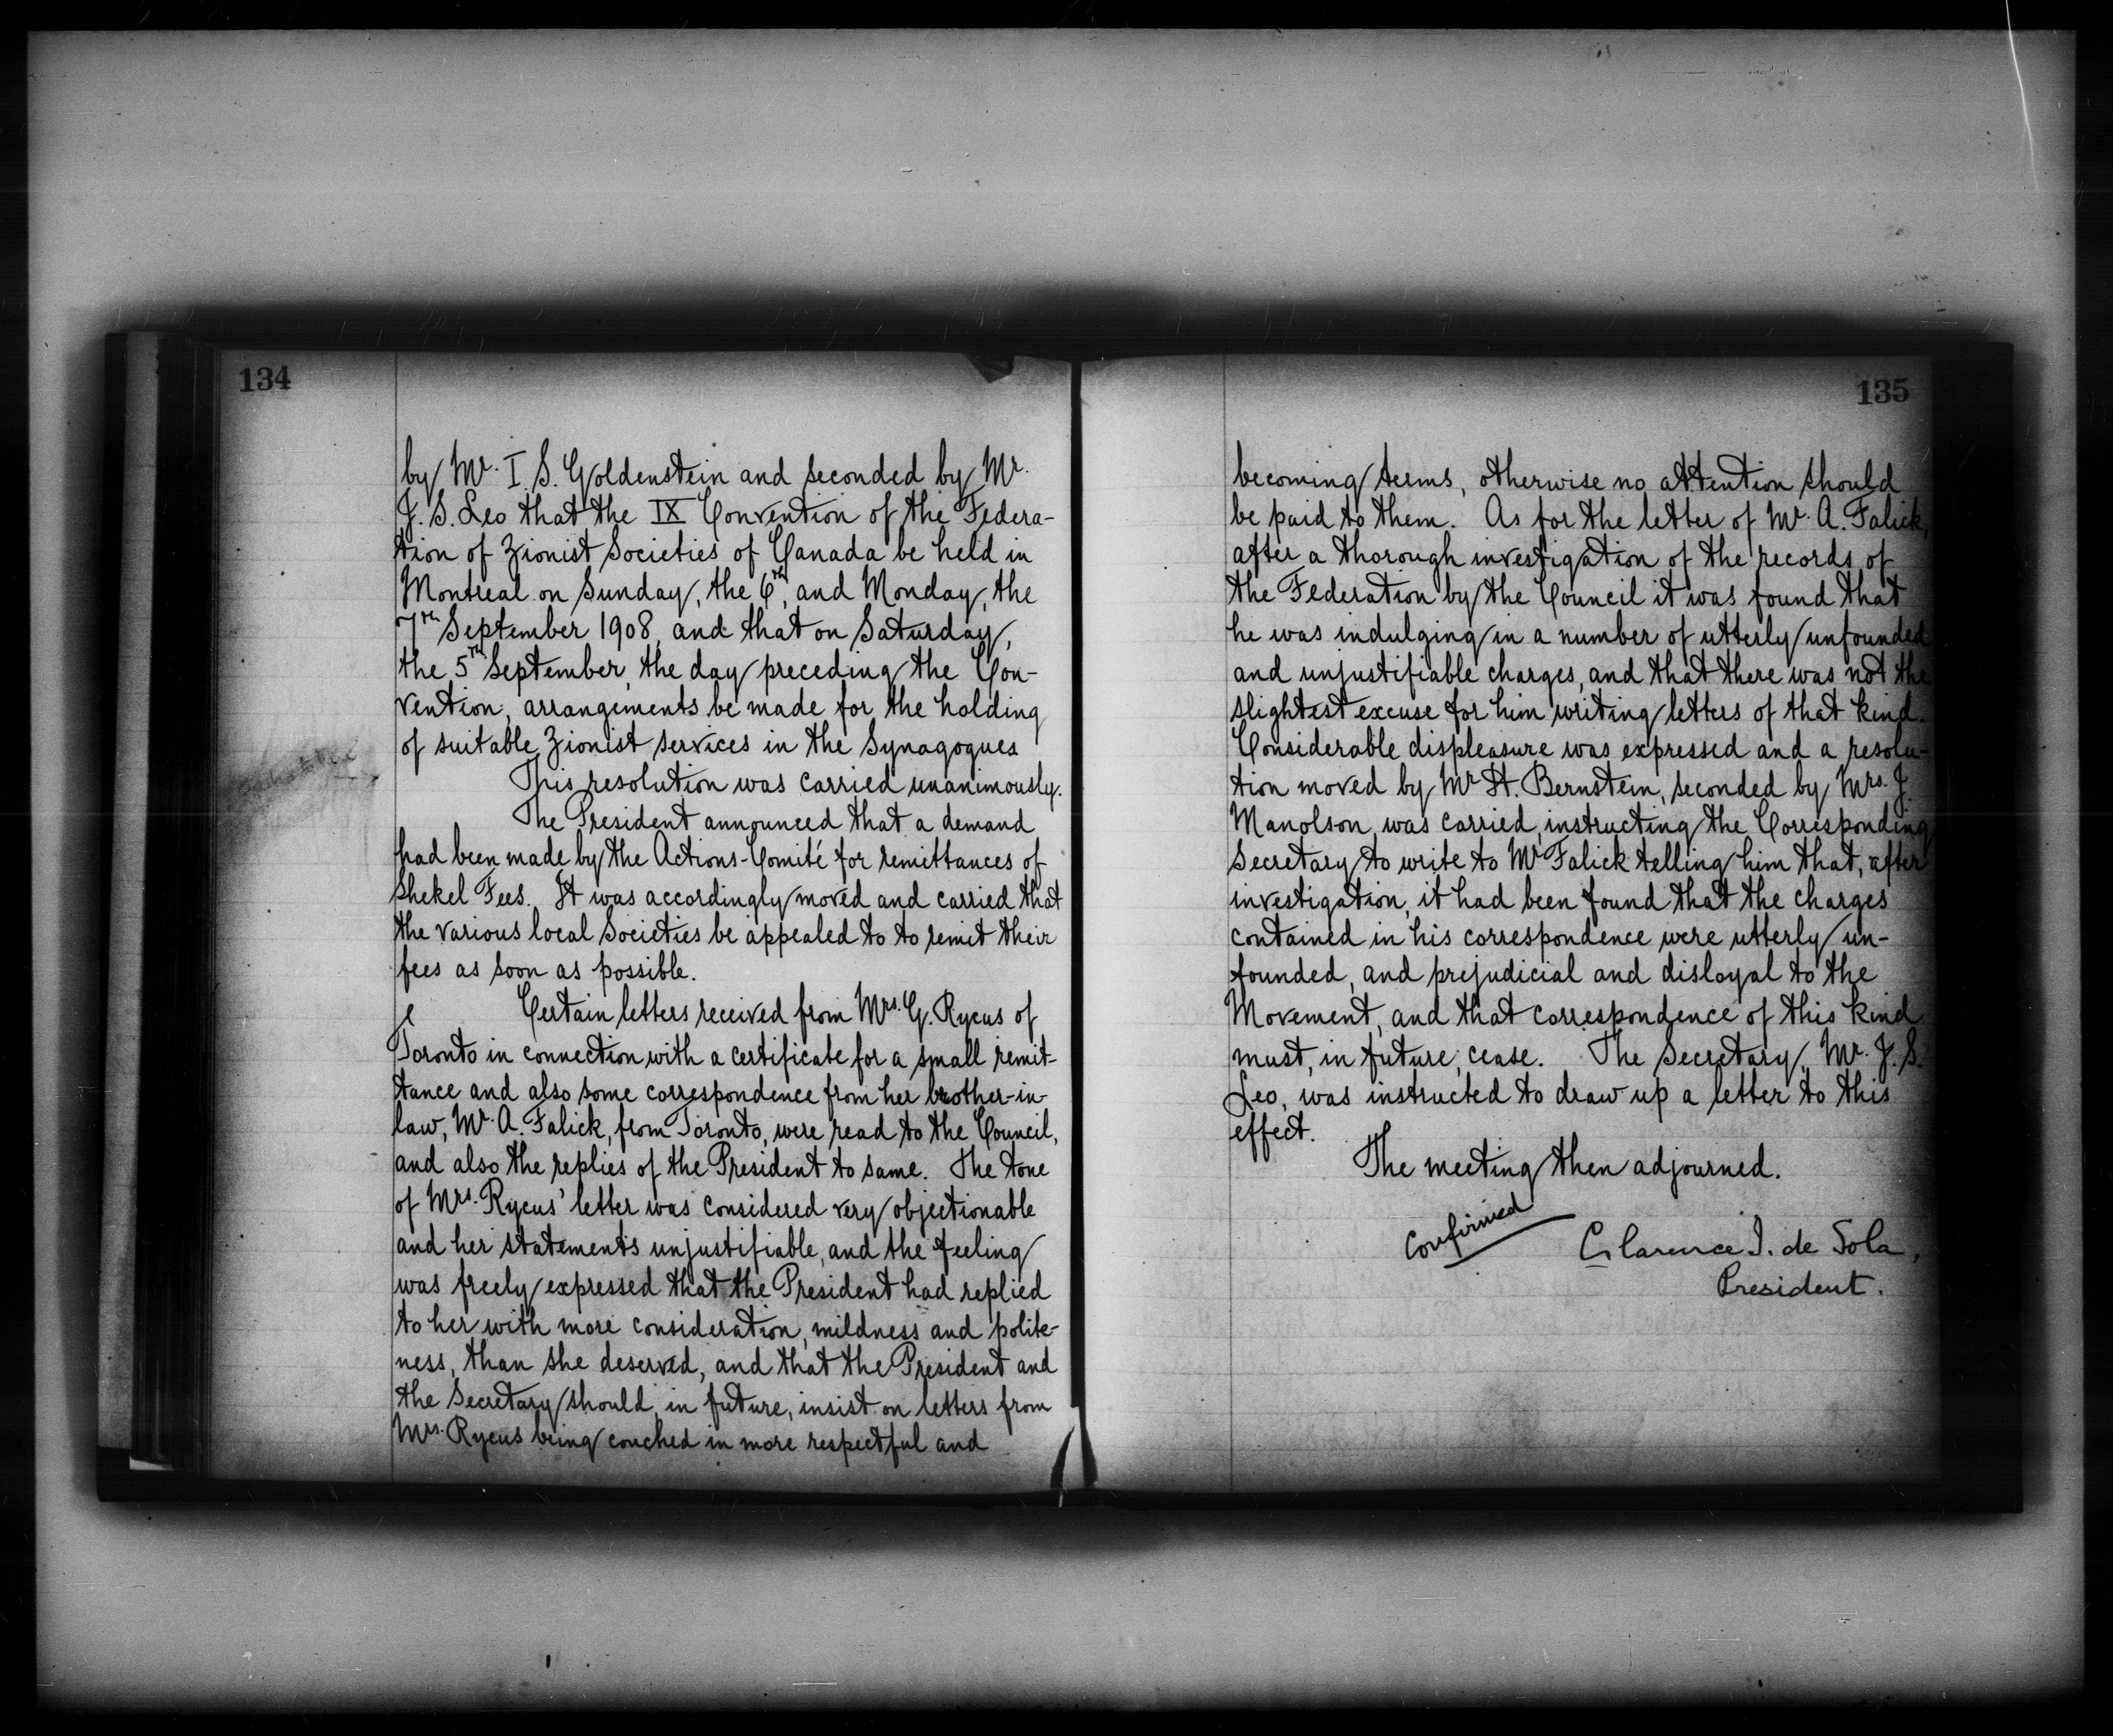 134
by Mr. I. S. Goldenstein and seconded by Mr.
J. S. Leo that the IX Convention of the Federa-
tion of Zionist Societies of Canada be held in
Montreal on Sunday, the 6th, and Monday, the
7th September 1908, and that on Saturday,
the 5th September, the day preceding the Con-
vention, arrangements be made for the holding
of suitable Zionist services in the Synagogues
This resolution was carried unanimously.
The President announced that a demand
had been made by the Actions-Comité for remittances of
Shekel Fees. It was accordingly moved and carried that
the various local Societies be appealed to to remit their
fees as soon as possible.
Certain letters received from Mrs. G. Rycus of
Toronto in connection with a certificate for a small remit-
tance and also some correspondence from her brother-in-
law, Mr. A. Falick, from Toronto, were read to the Council,
and also the replies of the President to same. The tone
of Mrs. Rycus' letter was considered very objectionable
and her statements unjustifiable, and the feeling
was freely expressed that the President had replied
to her with more consideration, mildness and polite-
ness, than she deserved, and that the President and
the Secretary should, in future, insist on letters from
Mrs. Rycus being couched in more respectful and
135
becoming terms, otherwise no attention should
be paid to them. As for the letter of Mr. A. Falick,
after a thorough investigation of the records of
the Federation by the Council it was found that
he was indulging in a number of utterly unfounded
and unjustifiable charges, and that there was not the
slightest excuse for him writing letters of that kind.
Considerable displeasure was expressed and a resolu-
tion moved by Mr H. Bernstein, seconded by Mrs. J.
Manolson, was carried, instructing the Corresponding
Secretary to write to Mr Falick telling him that, after
investigation, it had been found that the charges
contained in his correspondence were utterly un-
founded, and prejudicial and disloyal to the
Movement, and that correspondence of this kind
must, in future, cease. The Secretary, Mr. J. S.
Leo, was instructed to draw up a letter to this
effect.
The meeting then adjourned.
Confirmed
Clarence I. de Sola,
President.